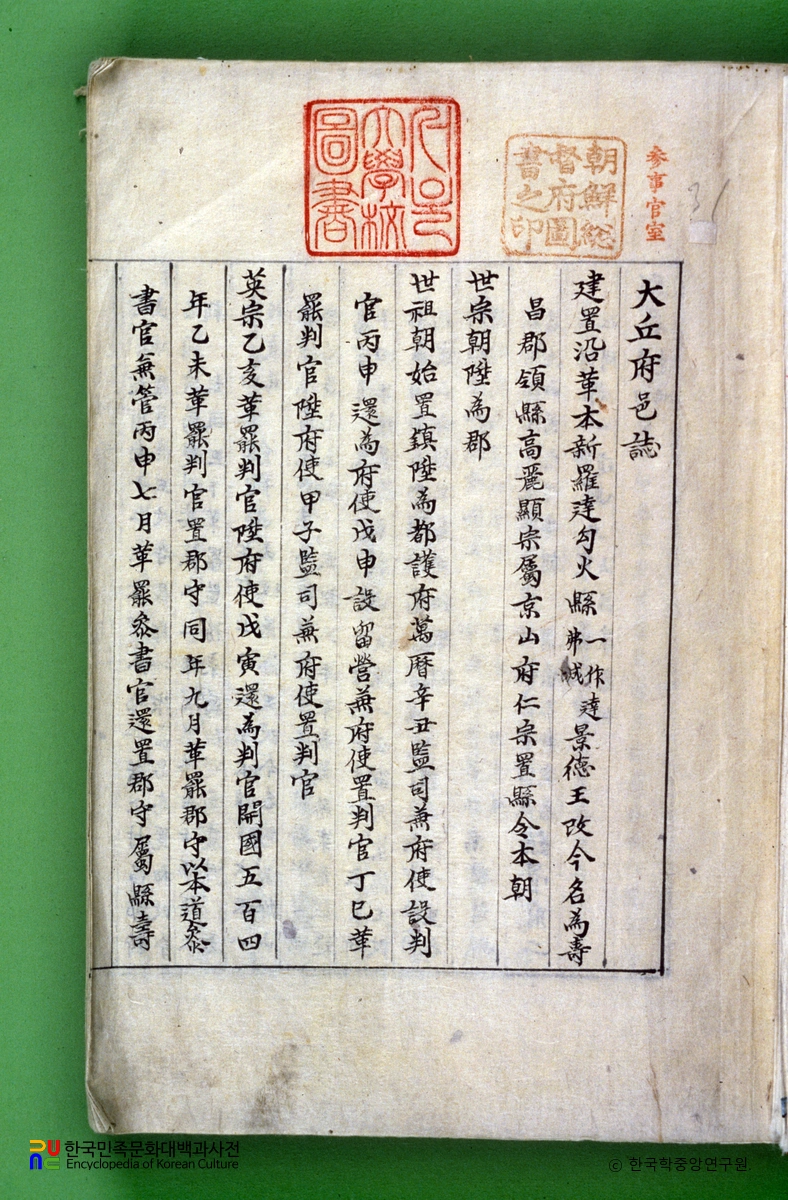 参事官室
31
朝鮮総
督府圖
書之印
서울
大學校
圖書
大丘府邑誌
建置沿革本新羅達勾火縣一作達弗城景德王改今名為壽
昌郡領縣高麗顯宗屬京山府仁宗置縣令本朝
世宗朝陞為郡
世祖朝始置鎮陞為都護府萬曆辛丑監司兼府使設判
官丙申還為府使戊申設留營兼府使置判官丁巳革
罷判官陞府使甲子監司兼府使置判官
英宗乙亥革罷判官陞府使戊寅還為判官開國五百四
年乙未革罷判官置郡守同年九月革罷郡守以本道叅
書官兼管丙申七月革罷叅書官還置郡守屬縣壽
한국민족문화대백과사전
Encyclopedia of Korean Culture
© 한국학중앙연구원